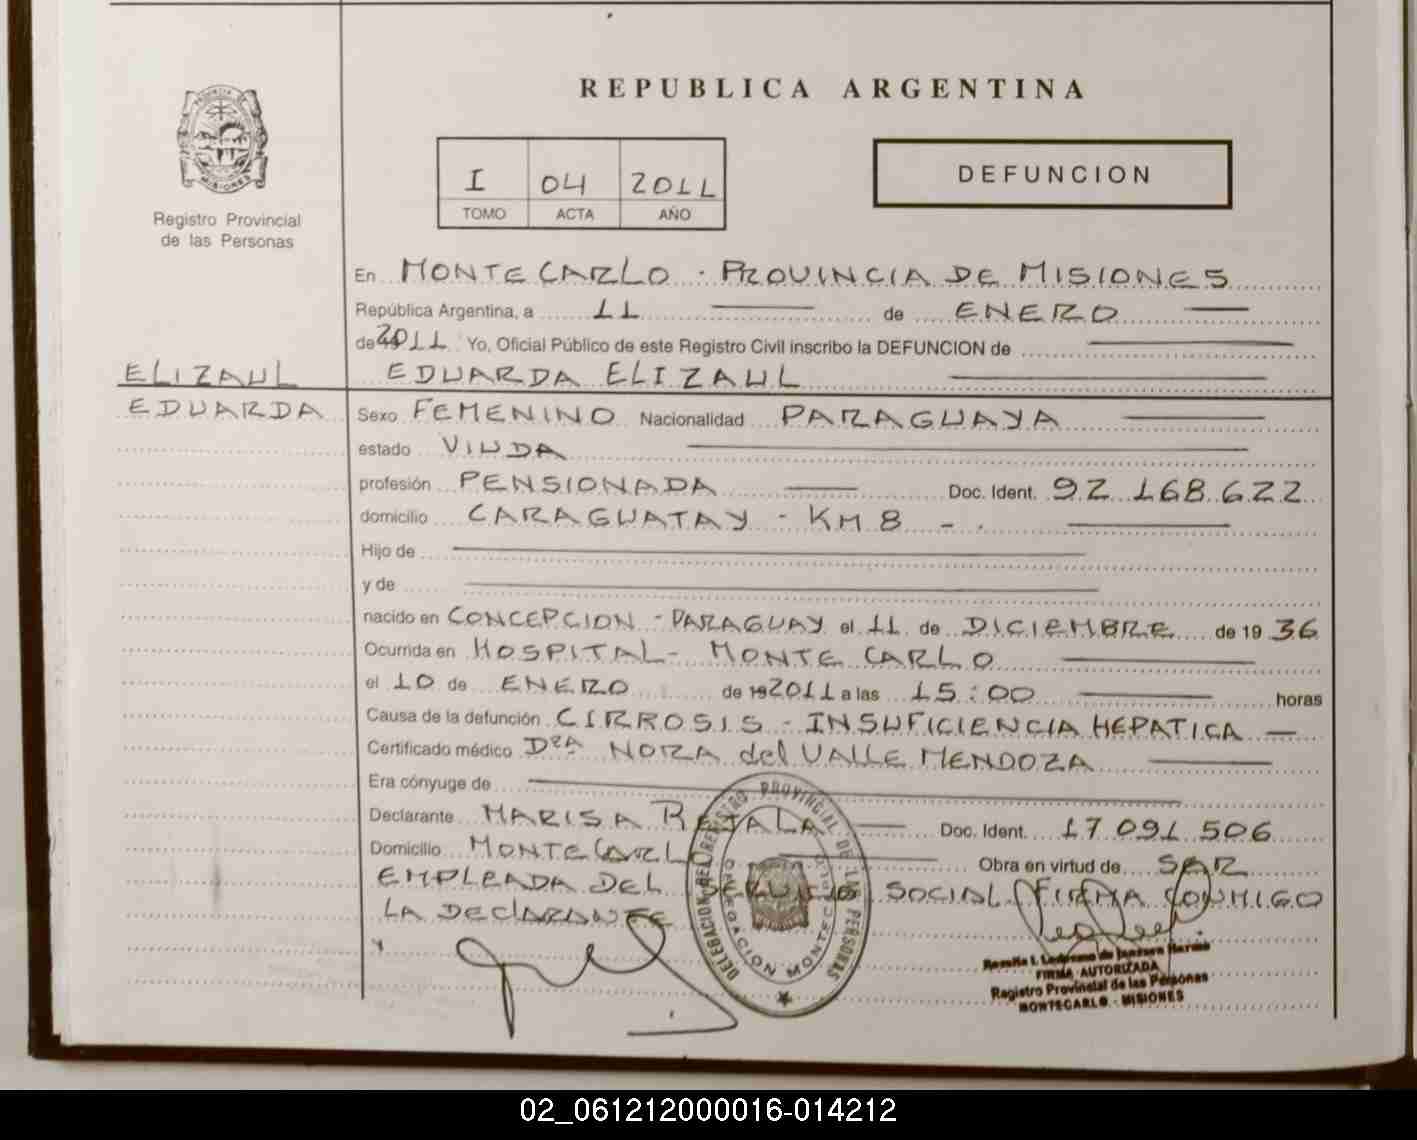 REPUBLICA ARGENTINA
PROVINCIA DE
MISIONES
Registro Provincial
de las Personas
I 04 2011
TOMO ACTA AÑO
DEFUNCION
En MONTECARLO - PROVINCIA DE MISIONES
República Argentina, a 11 de ENERO
de 2011 Yo, Oficial Público de este Registro Civil inscribo la DEFUNCION de
ELIZAUL EDUARDA ELIZAUL
EDUARDA Sexo FEMENINO Nacionalidad PARAGUAYA
estado VIUDA
profesión PENSIONADA Doc. Ident. 92 168.622
domicilio CARAGUATAY - KM 8 - .
Hijo de
y de
nacido en CONCEPCION - PARAGUAY el 11 de DICIEMBRE de 19 36
Ocurrida en HOSPITAL - MONTECARLO
el 10 de ENERO de 19 2011 a las 15:00 horas
Causa de la defunción CIRROSIS - INSUFICIENCIA HEPATICA
Certificado médico DRA NORA del VALLE MENDOZA
Era cónyuge de
Declarante MARISA Doc. Ident. 17 091 506
Domicilio MONTECARLO Obra en virtud de SER
EMPLEADA DEL SERVICIO SOCIAL FIRMA CONMIGO
LA DECLARANTE
DELEGACION DEL REGISTRO PROVINCIAL DE LAS PERSONAS
DELEGACION MONTECARLO
FIRMA AUTORIZADA
Registro Provincial de las Personas
MONTECARLO - MISIONES
02_061212000016-014212